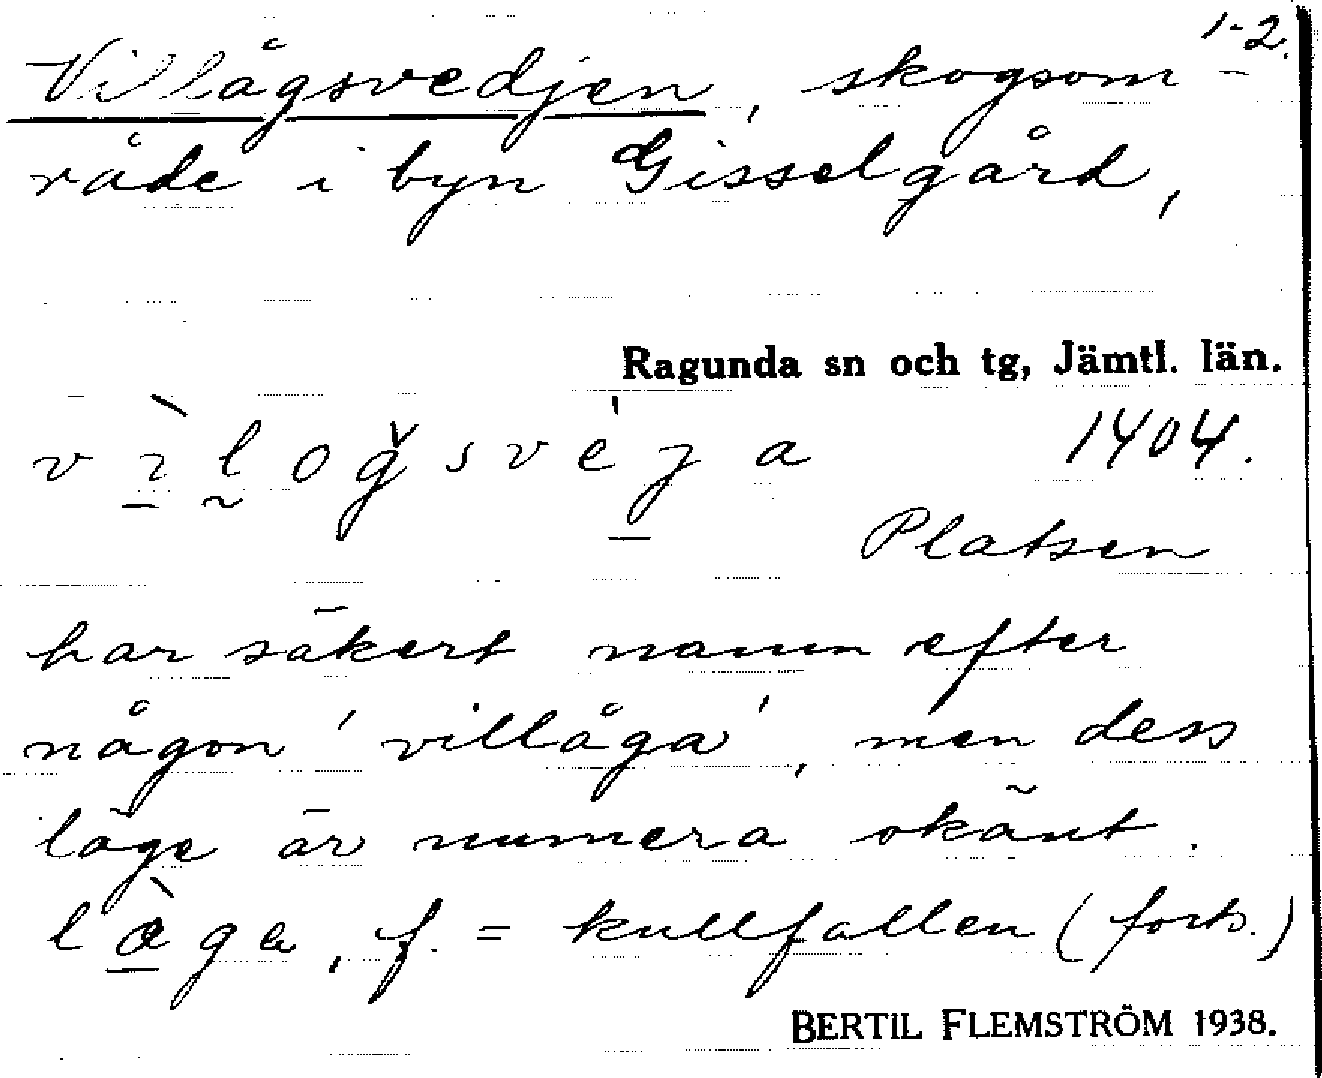 1-2.
Villågsvedjen, skogsom-
råde i byn Gisselgård,
Ragunda sn och tg, Jämtl. län.
vìloğsvéja 1404.
Platsen
har säkert namn efter
någon 'villåga', men dess
läge är numera okänt.
lòga, f. = kullfallen (forts.)
BERTIL FLEMSTRÖM 1938.